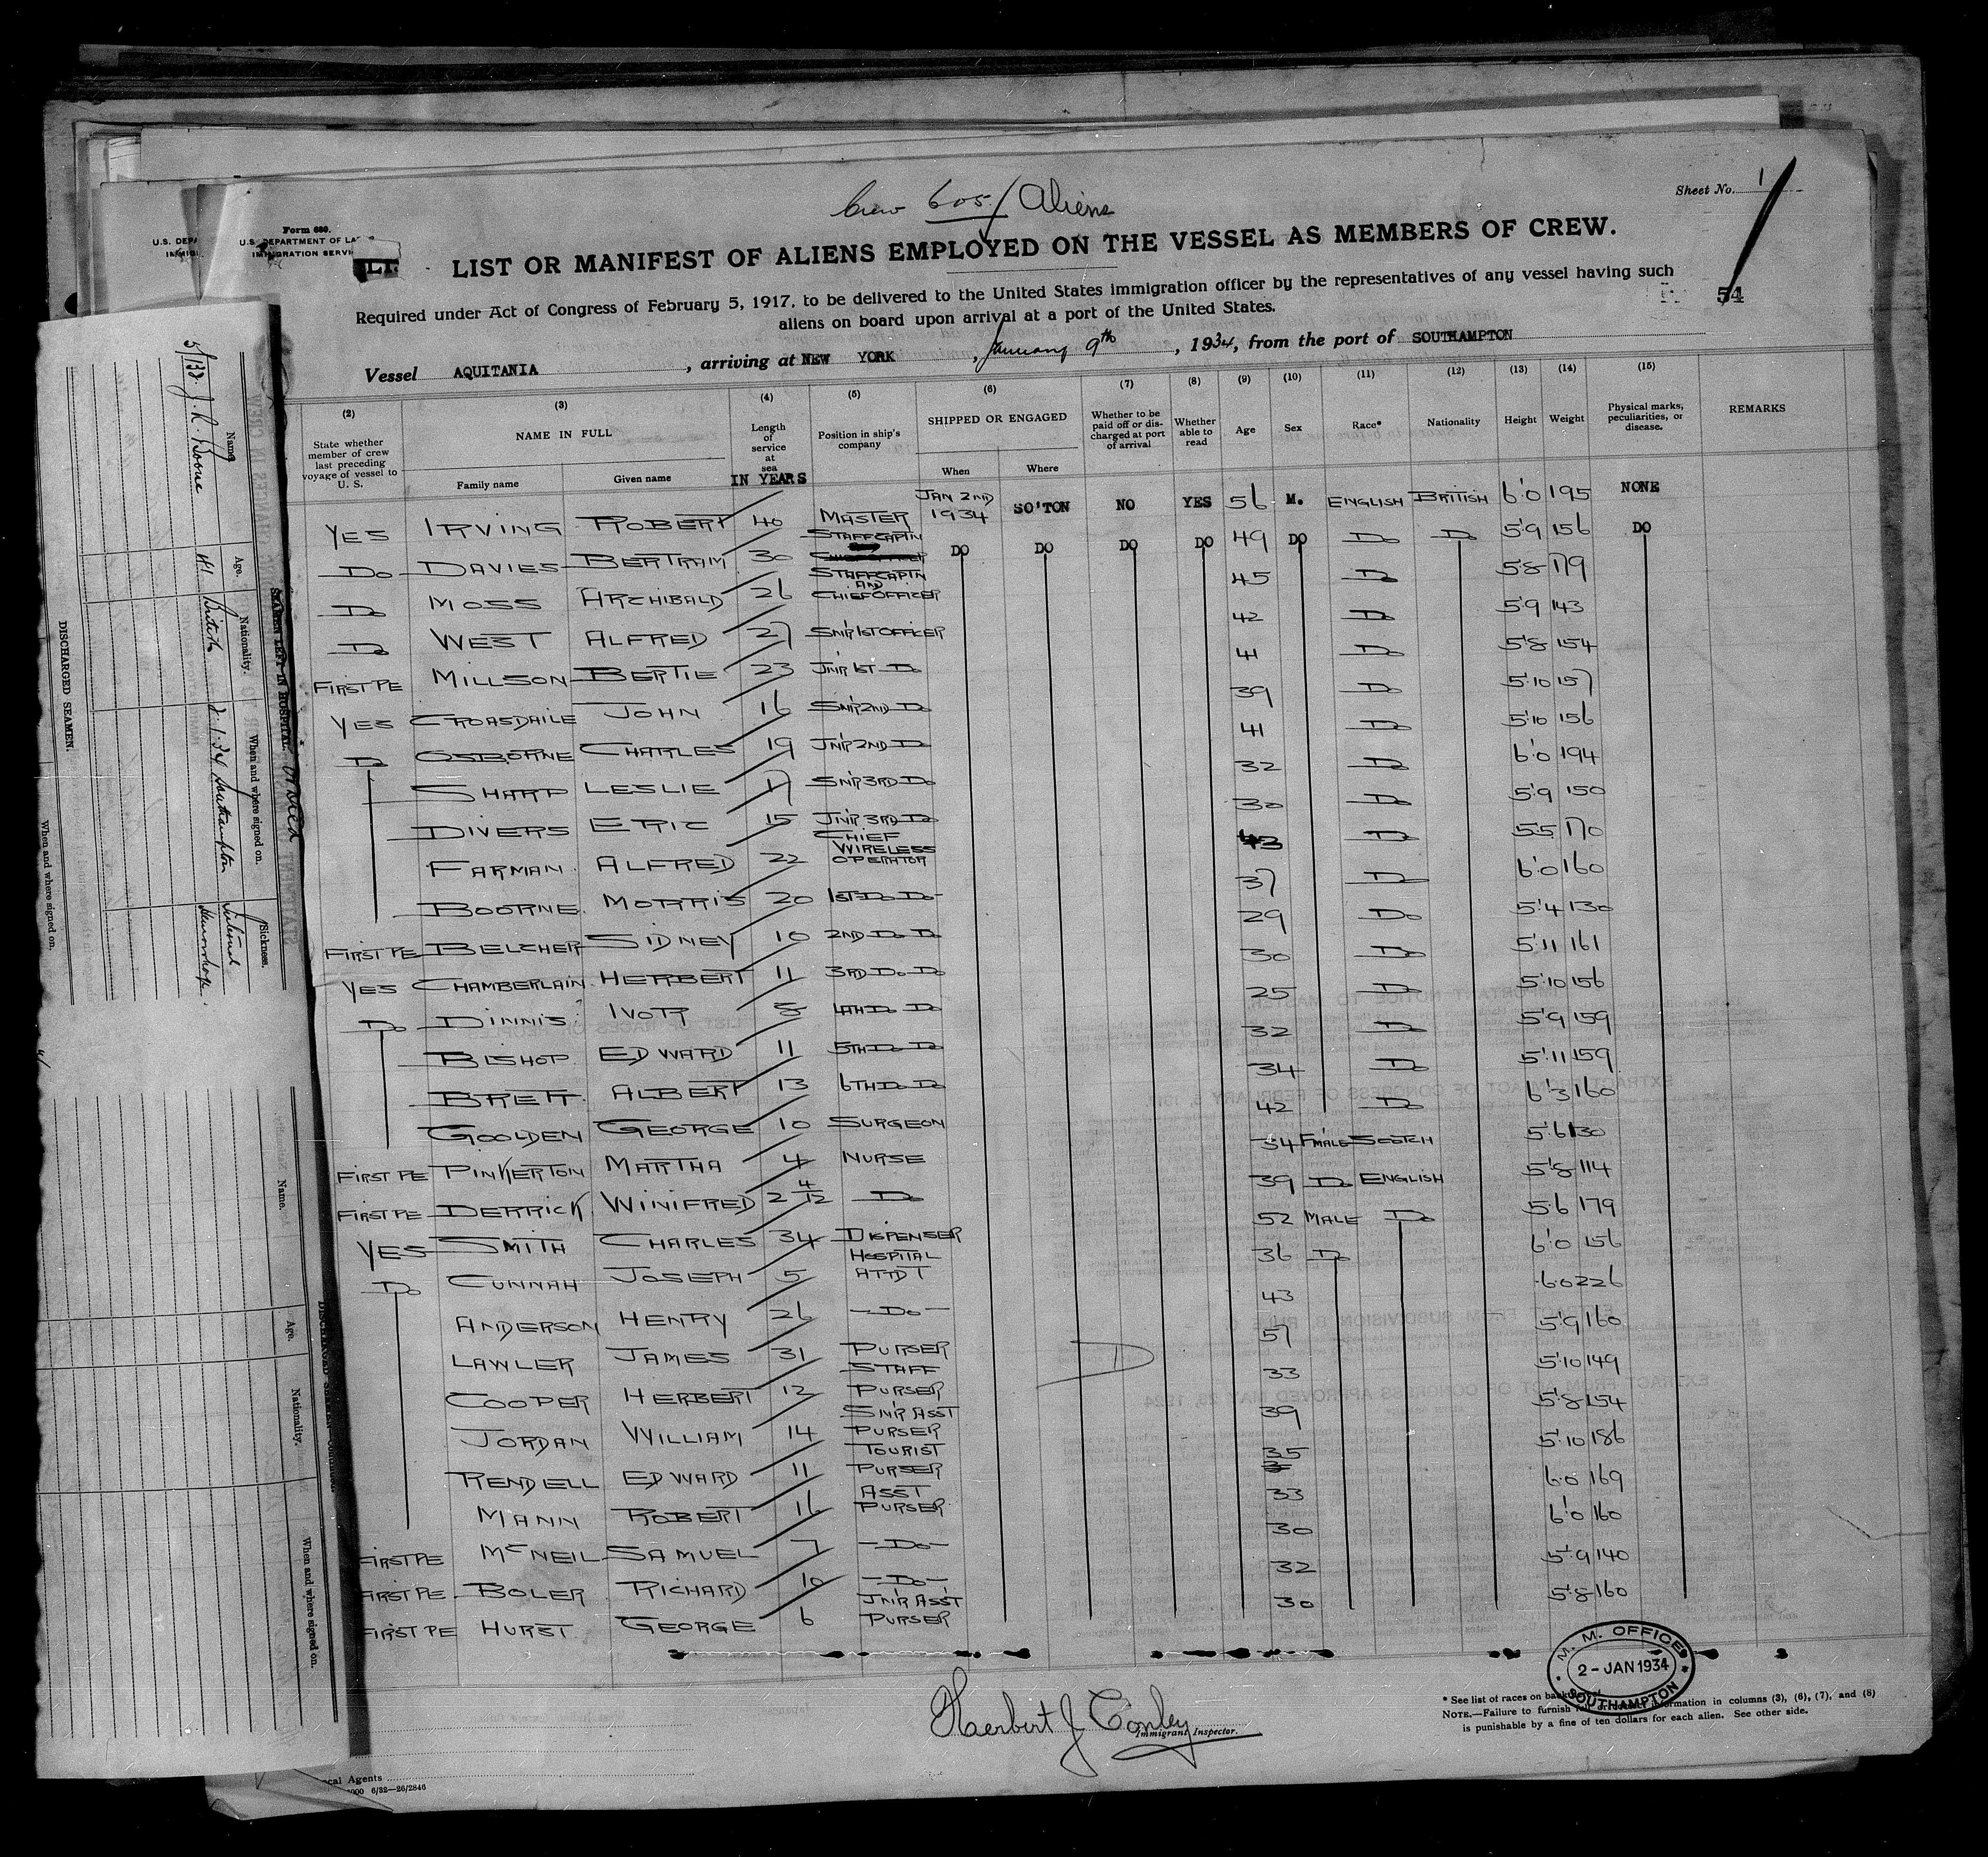 Crew 605 / Aliens
Sheet No. 1
Form 680.
U.S. DEPARTMENT OF LA
IMMIGRATION SERVI
U.S. DEPA
LIST OR MANIFEST OF ALIENS EMPLOYED ON THE VESSEL AS MEMBERS OF CREW.
Required under Act of Congress of February 5, 1917, to be delivered to the United States immigration officer by the representatives of any vessel having such
aliens on board upon arrival at a port of the United States.
54
Vessel AQUITANIA, arriving at NEW YORK, January 9th, 1934, from the port of SOUTHAMPTON
(2) (3) (4) (5) (6) (7) (8) (9) (10) (11) (12) (13) (14) (15)
State whether member of crew last preceding voyage of vessel to U. S. NAME IN FULL Length of service at sea IN YEARS Position in ship's company SHIPPED OR ENGAGED Whether to be paid off or discharged at port of arrival Whether able to read Age Sex Race* Nationality Height Weight Physical marks, peculiarities, or disease. REMARKS
Family name Given name When Where
YES IRVING ROBERT 40 MASTER JAN 2ND 1934 SO'TON NO YES 56 M. ENGLISH BRITISH 6'0 195 NONE
Do DAVIES BERTRAM 30 STAFF CAPTN DO DO DO DO 49 DO Do Do 5'9 156 DO
Do MOSS ARCHIBALD 26 STAFF CAPTN AND CHIEF OFFICER 45 Do 5'8 179
Do WEST ALFRED 27 SNR 1ST OFFICER 42 Do 5'9 143
FIRST PE MILLSON BERTIE 23 JNR 1ST Do 41 Do 5'8 154
YES CROASDAILE JOHN 16 SNR 2ND Do 39 Do 5'10 157
Do OSBORNE CHARLES 19 JNR 2ND Do 41 Do 5'10 156
SHARP LESLIE 17 SNR 3RD Do 32 Do 6'0 194
DIVERS ERIC 15 JNR 3RD Do 30 Do 5'9 150
FARMAN ALFRED 22 CHIEF WIRELESS OPERATOR 43 Do 5'5 170
BOORNE MORRIS 20 1ST Do Do 37 Do 6'0 160
FIRST PE BELCHER SIDNEY 10 2ND Do Do 29 Do 5'4 130
YES CHAMBERLAIN HERBERT 11 3RD Do Do 30 Do 5'11 161
Do DINNIS IVOR 8 4TH Do Do 25 Do 5'10 156
BISHOP EDWARD 11 5TH Do Do 32 Do 5'9 159
BRETT ALBERT 13 6TH Do Do 34 Do 5'11 159
GOOLDEN GEORGE 10 SURGEON 42 Do 6'3 160
FIRST PE PINKERTON MARTHA 4 NURSE 34 F'MALE SCOTCH 5'6 130
FIRST PE DERRICK WINIFRED 2 4/12 Do 39 Do ENGLISH 5'8 114
YES SMITH CHARLES 34 DISPENSER 52 MALE Do 5'6 179
Do CUNNAH JOSEPH 5 HOSPITAL ATTDT 36 Do 6'0 156
ANDERSON HENRY 26 Do 43 6'0 226
LAWLER JAMES 31 PURSER 57 5'9 160
COOPER HERBERT 12 STAFF PURSER 33 5'10 149
JORDAN WILLIAM 14 SNR ASST PURSER 39 5'8 154
RENDELL EDWARD 11 TOURIST PURSER 35 5'10 186
MANN ROBERT 16 ASST PURSER 33 6'0 169
FIRST PE McNEIL SAMUEL 7 Do 30 6'0 160
FIRST PE BOLER RICHARD 10 Do 32 5'9 140
FIRST PE HURST GEORGE 6 JNR ASST PURSER 30 5'8 160
Herbert J Conley
Immigrant Inspector.
M. M. OFFICE
2 - JAN 1934
SOUTHAMPTON
* See list of races on back
NOTE.—Failure to furnish information in columns (3), (6), (7), and (8)
is punishable by a fine of ten dollars for each alien. See other side.
cal Agents
000 6/32—26/2846
SEAMEN LEFT IN HOSPITAL
Name. Age. Nationality. When and where signed on. Sickness.
J. R. Boone 41 British 2.1.34 Southampton
DISCHARGED SEAMEN.
When and where signed on.
Name. Age. Nationality. When and where signed on.